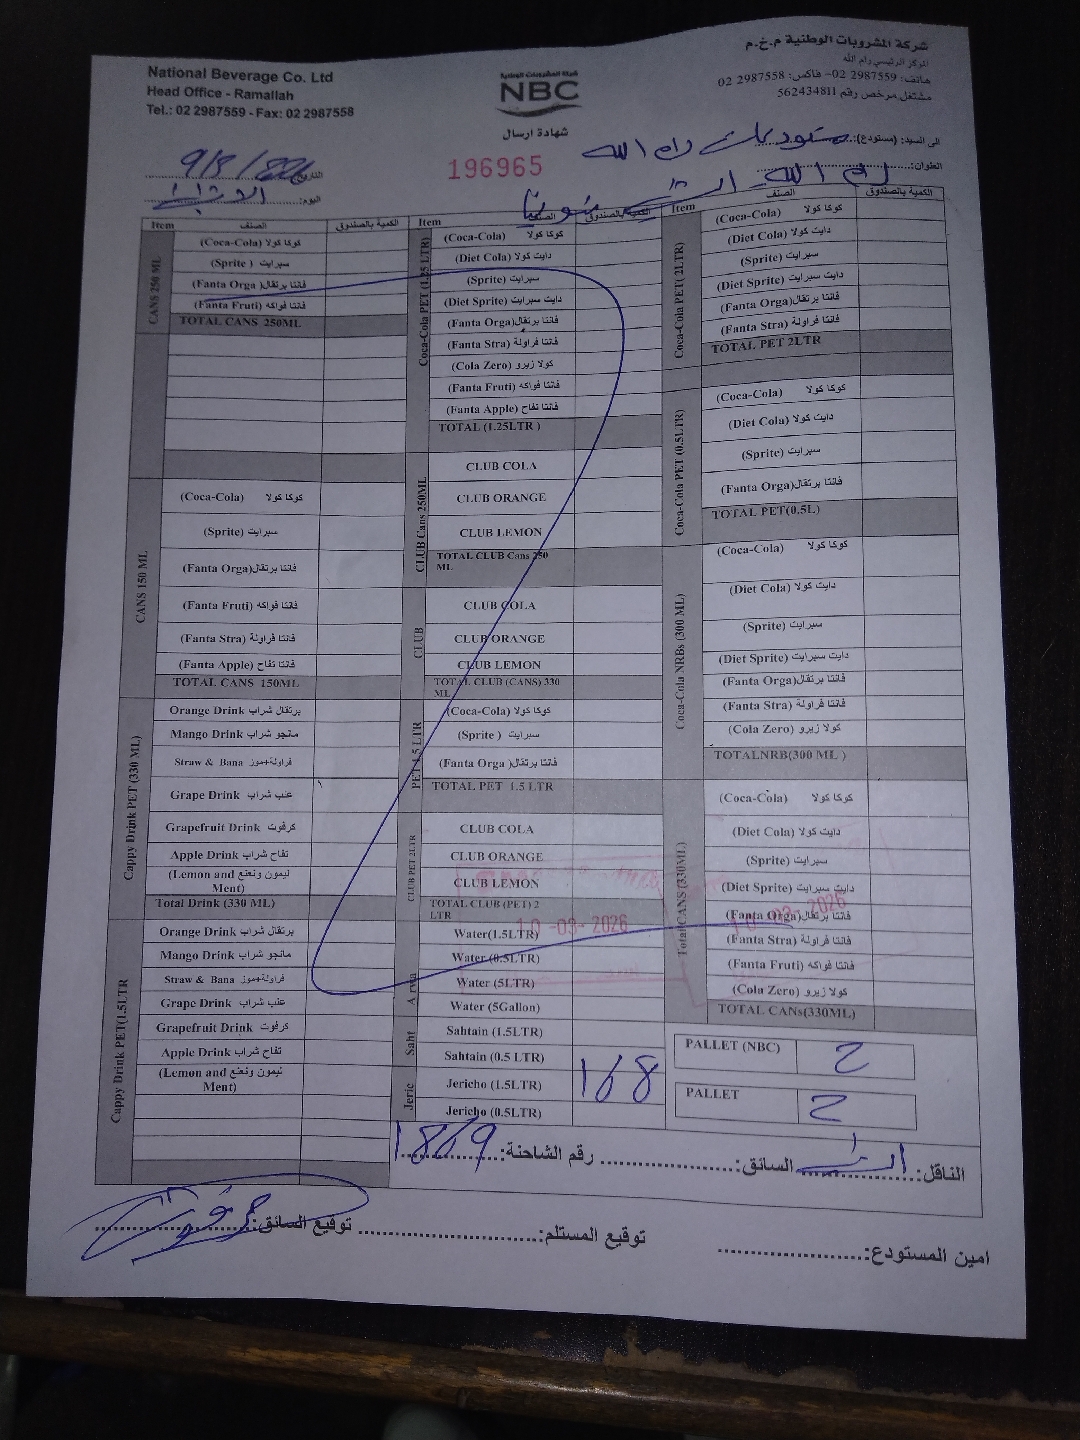 National Beverage Co. Ltd
Head Office - Ramallah
Tel.: 02 2987559 - Fax: 02 2987558
شركة المشروبات الوطنية
NBC
شهادة ارسال
196965
شركة المشروبات الوطنية م.خ.م
المركز الرئيسي رام الله
هاتف: 2987559 02- فاكس: 2987558 02
مشتغل مرخص رقم 562434811
الى السيد: (مستودع): رام الله
العنوان: رام الله
التاريخ
اليوم: الاثنين
Item الصنف الكمية بالصندوق
CANS 250 ML
(Coca-Cola) كوكا كولا
(Sprite ) سبرايت
(Fanta Orga) فانتا برتقال
(Fanta Fruti) فانتا فواكه
TOTAL CANS 250ML
CANS 150 ML
(Coca-Cola) كوكا كولا
(Sprite) سبرايت
(Fanta Orga) فانتا برتقال
(Fanta Fruti) فانتا فواكه
(Fanta Stra) فانتا فراولة
(Fanta Apple) فانتا تفاح
TOTAL CANS 150ML
Cappy Drink PET (330 ML)
Orange Drink برتقال شراب
Mango Drink مانجو شراب
Straw & Bana فراولة+موز
Grape Drink عنب شراب
Grapefruit Drink كرفوت
Apple Drink تفاح شراب
(Lemon and ليمون ونعنع
Ment)
Total Drink (330 ML)
Cappy Drink PET(1.5LTR
Orange Drink برتقال شراب
Mango Drink مانجو شراب
Straw & Bana فراولة+موز
Grape Drink عنب شراب
Grapefruit Drink كرفوت
Apple Drink تفاح شراب
(Lemon and ليمون ونعنع
Ment)
Item الصنف الكمية بالصندوق
Coca-Cola PET (1.25 LTR)
(Coca-Cola) كوكا كولا
(Diet Cola) دايت كولا
(Sprite) سبرايت
(Diet Sprite) دايت سبرايت
(Fanta Orga) فانتا برتقال
(Fanta Stra) فانتا فراولة
(Cola Zero) كولا زيرو
(Fanta Fruti) فانتا فواكه
(Fanta Apple) فانتا تفاح
TOTAL (1.25LTR )
CLUB Cans 250ML
CLUB COLA
CLUB ORANGE
CLUB LEMON
TOTAL CLUB Cans 250
ML
CLUB
CLUB COLA
CLUB ORANGE
CLUB LEMON
TOTAL CLUB (CANS) 330
ML
PET 1.5 LTR
(Coca-Cola) كوكا كولا
(Sprite ) سبرايت
(Fanta Orga ) فانتا برتقال
TOTAL PET 1.5 LTR
CLUB PET 2LTR
CLUB COLA
CLUB ORANGE
CLUB LEMON
TOTAL CLUB (PET) 2
LTR
Arwa
Water(1.5LTR)
Water (0.5LTR)
Water (5LTR)
Water (5Gallon)
Saht
Sahtain (1.5LTR)
Sahtain (0.5 LTR)
Jeric
Jericho (1.5LTR) 168
Jericho (0.5LTR)
10-03-2026
Item الصنف الكمية بالصندوق
Coca-Cola PET( 2LTR)
(Coca-Cola) كوكا كولا
(Diet Cola) دايت كولا
(Sprite) سبرايت
(Diet Sprite) دايت سبرايت
(Fanta Orga) فانتا برتقال
(Fanta Stra) فانتا فراولة
TOTAL PET 2LTR
Coca-Cola PET (0.5LTR)
(Coca-Cola) كوكا كولا
(Diet Cola) دايت كولا
(Sprite) سبرايت
(Fanta Orga) فانتا برتقال
TOTAL PET(0.5L)
Coca-Cola NRBs (300 ML)
(Coca-Cola) كوكا كولا
(Diet Cola) دايت كولا
(Sprite) سبرايت
(Diet Sprite) دايت سبرايت
(Fanta Orga) فانتا برتقال
(Fanta Stra) فانتا فراولة
(Cola Zero) كولا زيرو
TOTALNRB(300 ML )
Total CANS (330ML)
(Coca-Cola) كوكا كولا
(Diet Cola) دايت كولا
(Sprite) سبرايت
(Diet Sprite) دايت سبرايت
(Fanta Orga) فانتا برتقال
(Fanta Stra) فانتا فراولة
(Fanta Fruti) فانتا فواكه
(Cola Zero) كولا زيرو
TOTAL CANs(330ML)
10-03-2026
PALLET (NBC) 2
PALLET 2
الناقل: السائق: رقم الشاحنة:
امين المستودع: توقيع المستلم: توقيع السائق: